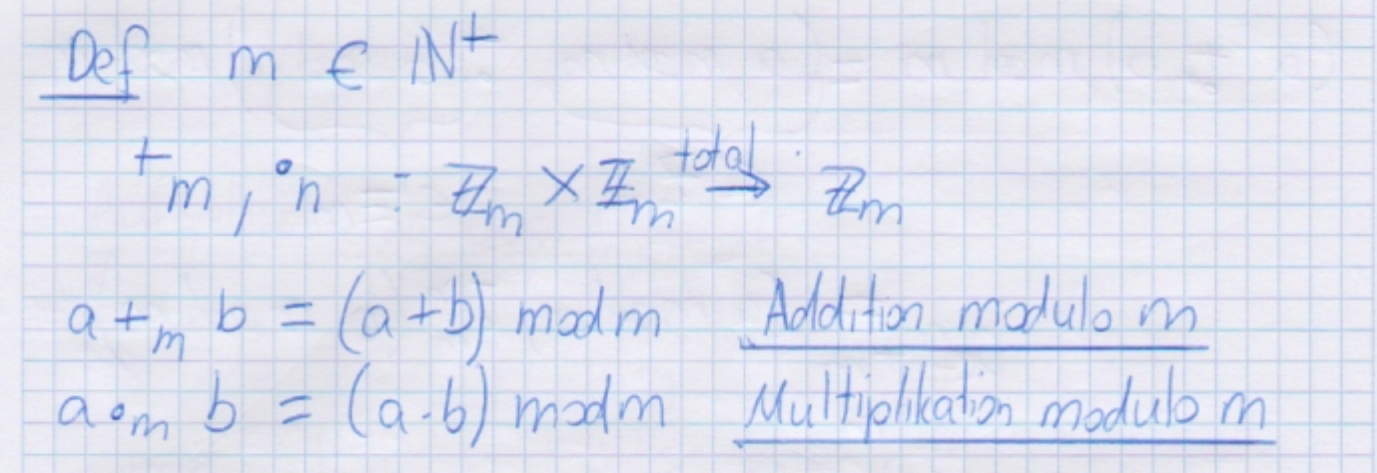 Def m ∈ ℕ⁺
+ₘ, •ₙ : ℤₘ × ℤₘ total→ ℤₘ
a +ₘ b = (a+b) mod m Addition modulo m
a •ₘ b = (a·b) mod m Multiplikation modulo m